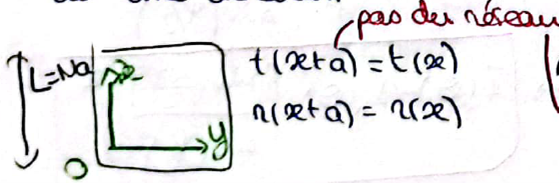 pas du réseau
t(x+a) = t(x)
L=Na
x
r(x+a) = r(x)
y
O